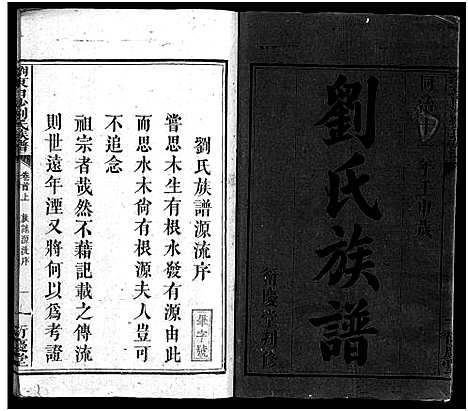 同治十一年壬申歲
劉氏族譜
衍慶堂刊修
劉氏族譜源流序
嘗思木生有根水發有源由此
而思水木尚有根源夫人豈可
不追念
祖宗者哉然不藉記載之傳流
則世遠年湮又將何以爲考證
字號
劉氏族譜
卷首上
族譜源流序
一
衍慶堂